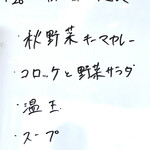 ・秋野菜キーマカレー
・コロッケと野菜サラダ
・温玉
・スープ